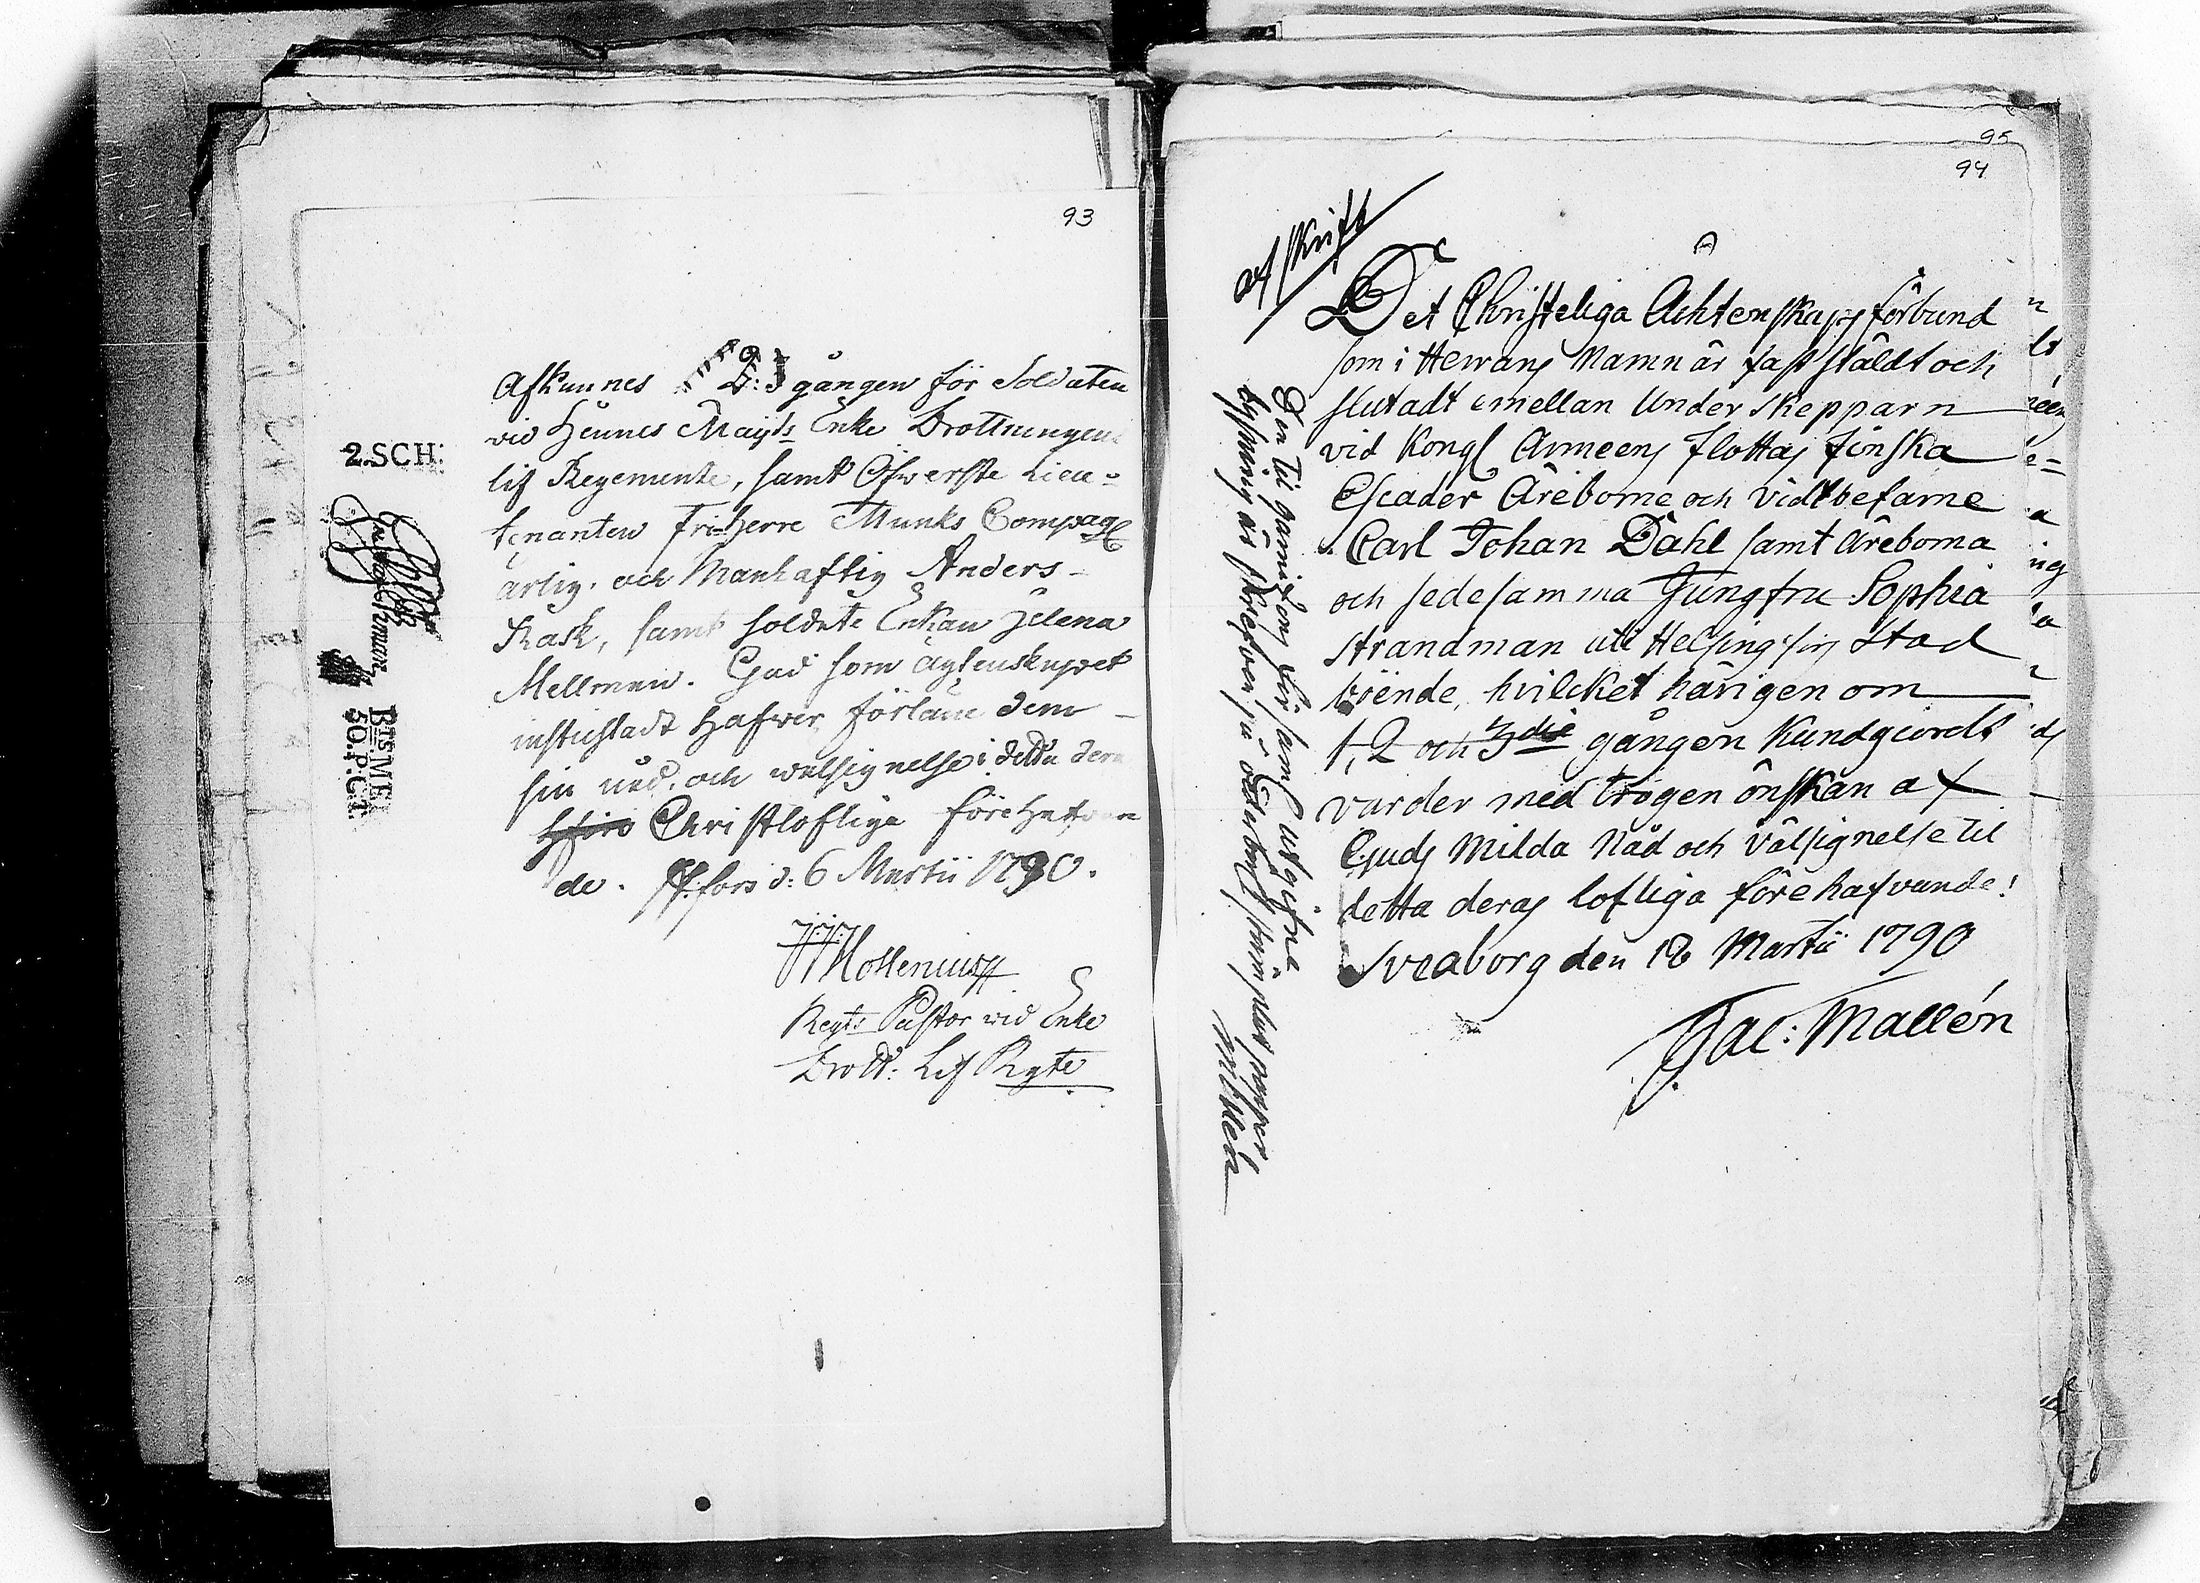 93
Afkunnes 2:3 gången för Soldaten
vid Hennes Maijts Enke Drottningens
lif Regemente, samt Öfwerste Lieu-
tenanten Friherre Munks Compag
ärlig. och Manhaftig Anders-
Rask, samt soldate Enkan Helena
Mellman. Gud som ägtenskapet
instichtadt hafwer, förläne dem
sin nåd, och wälsignelse i detta dera
Christlofliga förehafwan
de. H:fors d: 6 Martii 1790.
Regts Pastor wid Enke
Drott: Lif Regte
2.SCH:
BTS ME
50.P.CT.
95
94
Afskrift
Det Christeliga Ächtenskaps förbund
som i Herrans Namn är fastställdt och
slutadt emellan Under skepparn
vid Kongl Armeens flottas finska
Escader Ärebome och Vidtbefarne
Carl Johan Dahl samt Äreboma
och sedesamma Jungfru Sophia
Strandman uti Helsingfors Stad
boende, hvilcket härigenom
1, 2 och 3die gången Kundgiordt
varder med trogen önskan af
Guds Milda Nåd och Välsignelse til
detta deras lofliga förehafvande!
Sveaborg den 18 Martii 1790
Jac: Mallén
Den til garnizons församl utgifne
lysning är skrefven på stempladt papper